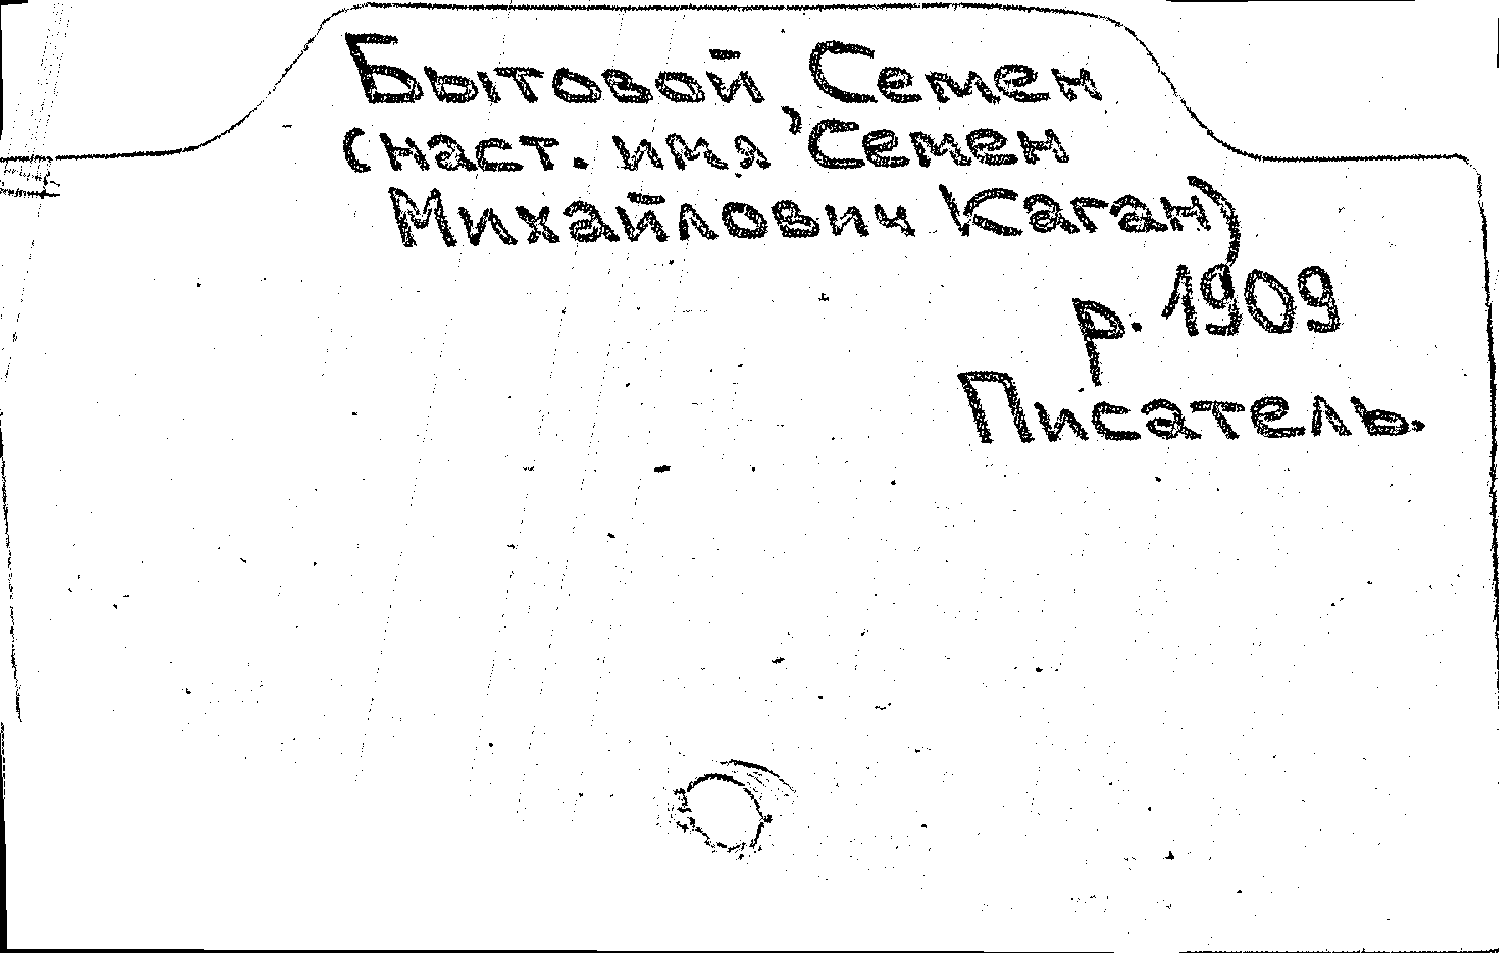 Бытовой, Семен
(наст. имя Семен
Михайлович Каган)
р. 1909
Писатель.